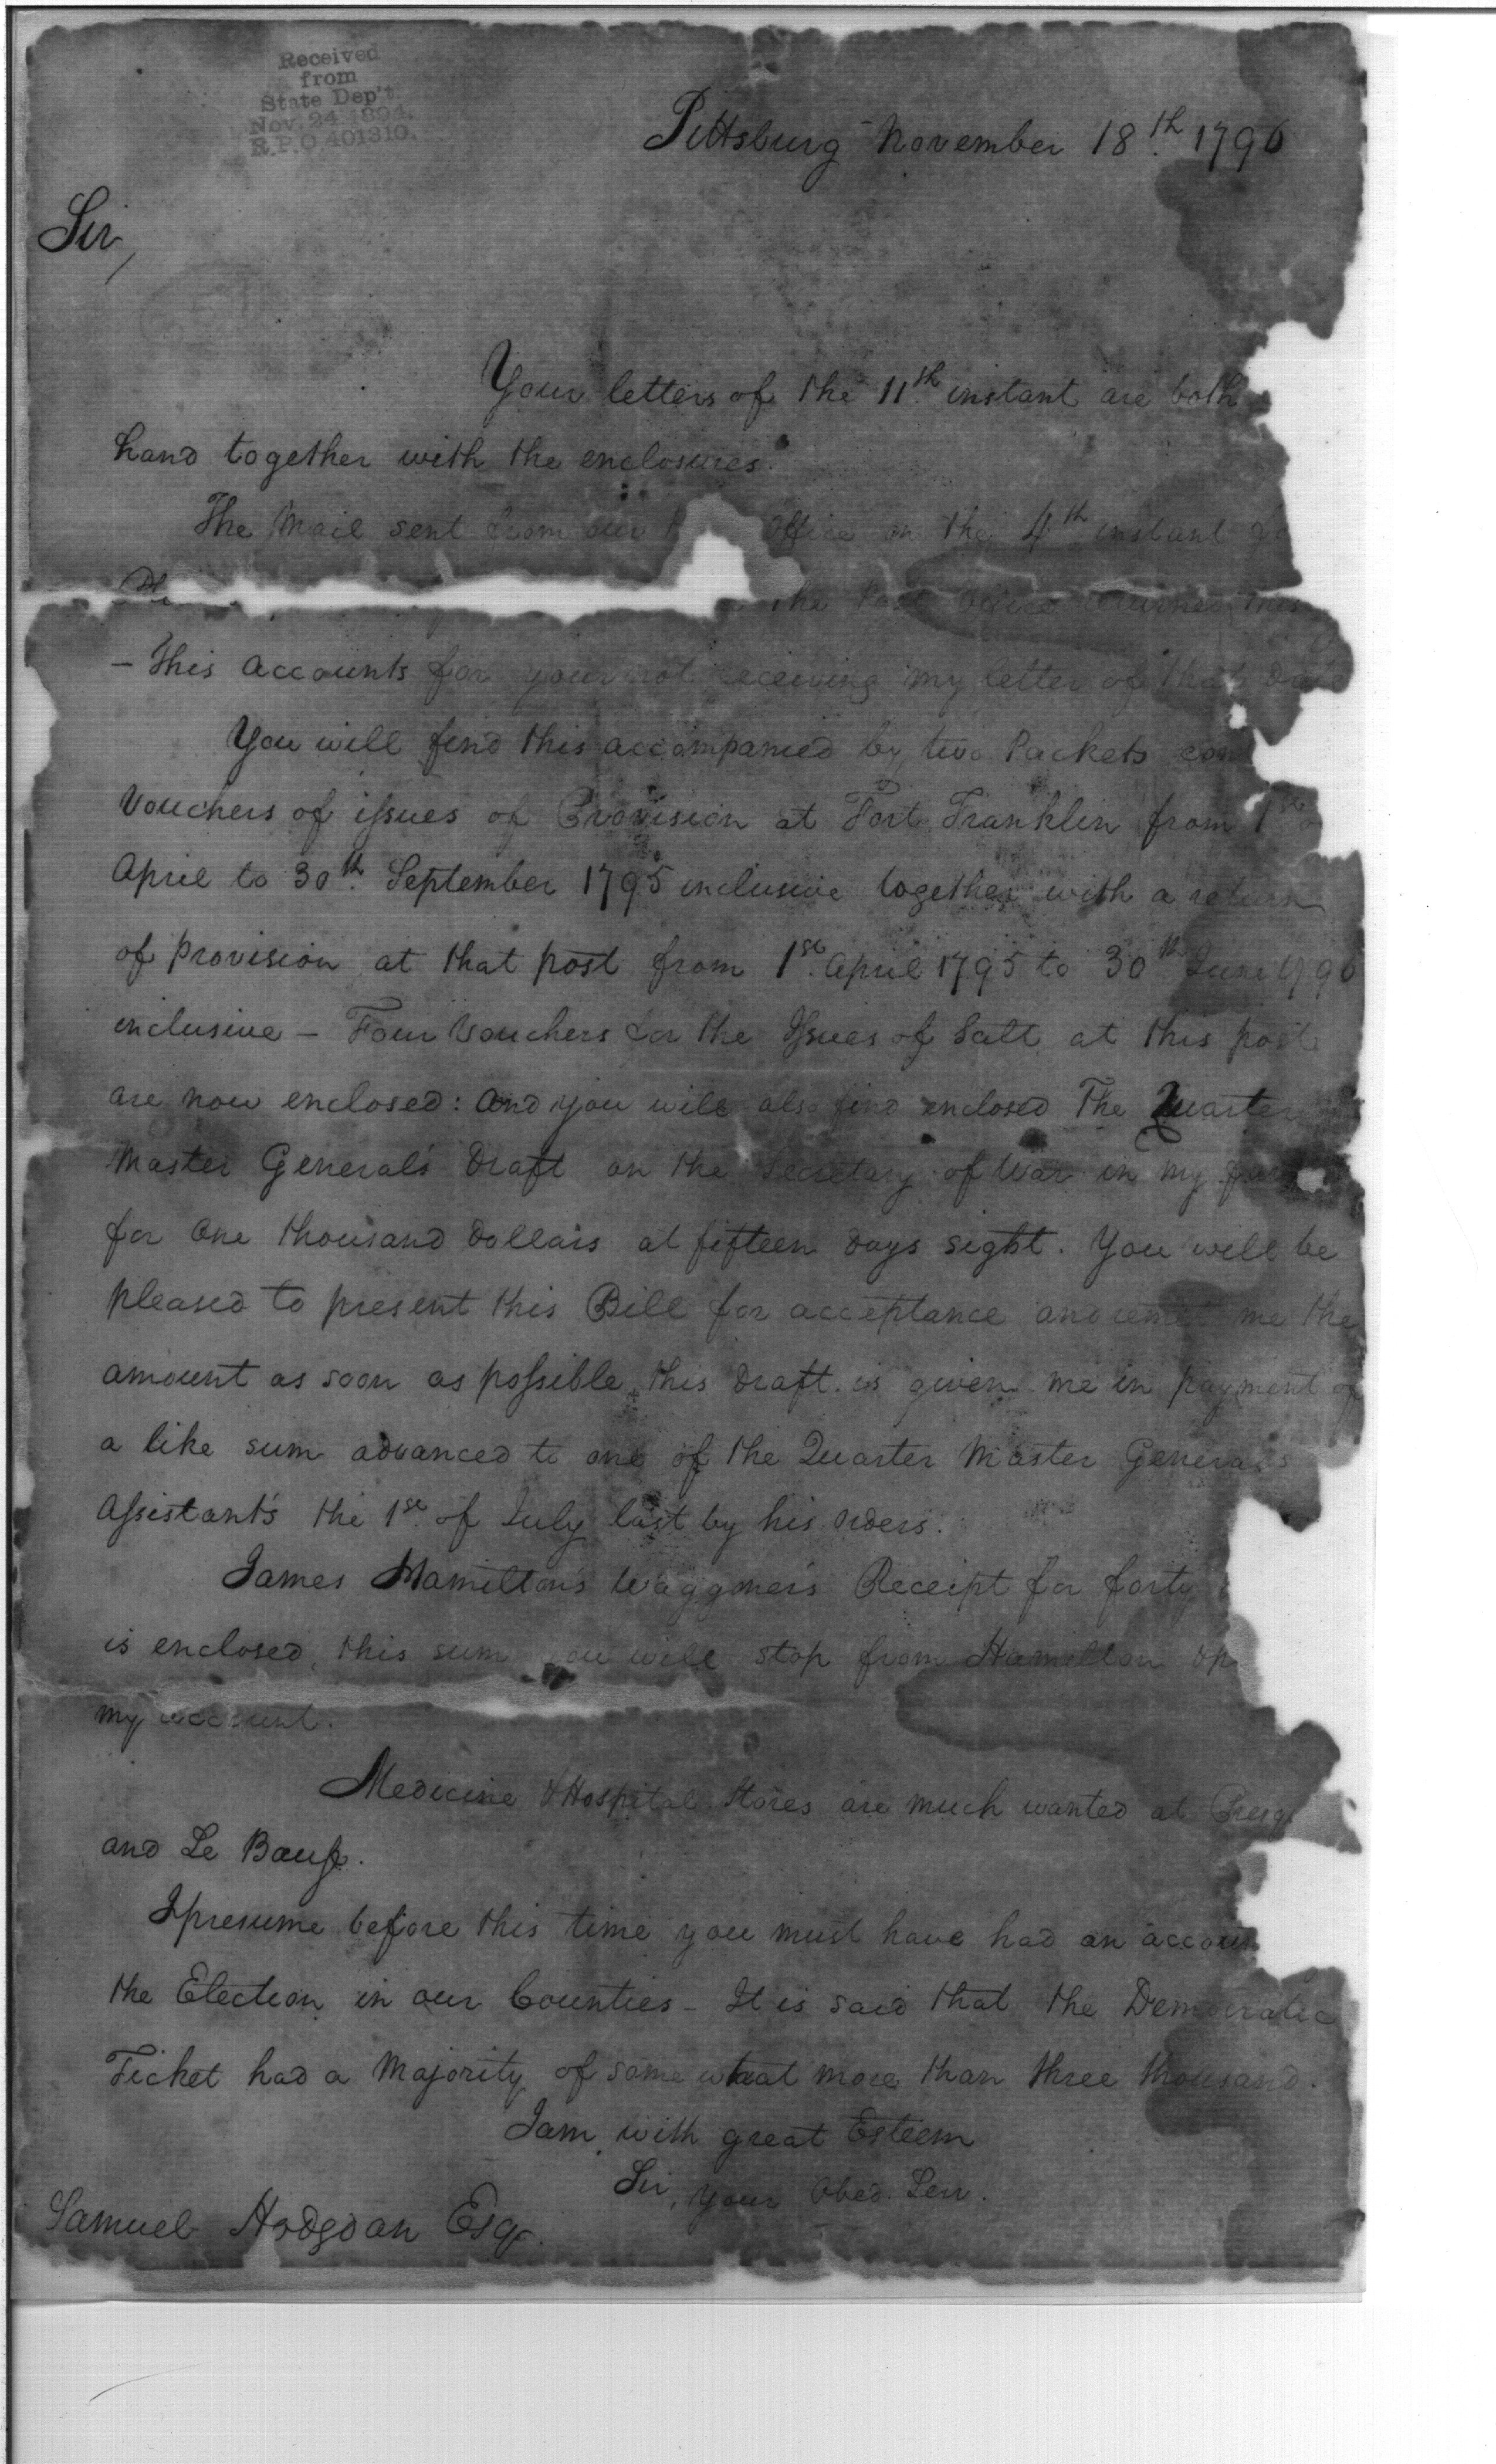 Received
from
State Dep't
Nov. 24 1894.
R.P.O 401310.
Pittsburg November 18th. 1796
Sir,
Your letters of the 11th. instant are both
hand together with the enclosures.
The Mail sent from our Office on the 4th instant
the Post Office
– this accounts for your not receiving my letter of that date
You will find this accompanied by two Packets
Vouchers of issues of Provision at Fort Franklin from 1st
April to 30th. September 1795 inclusive together with a return
of Provision at that post from 1st. April 1795 to 30th June 1796
inclusive – Four Vouchers for the Issues of Salt at this post
are now enclosed: and you will also find enclosed The Quarter
Master General's Draft on the Secretary of War in my
for One thousand Dollars at fifteen days sight. You will be
pleased to present this Bill for acceptance and remit me the
amount as soon as possible, this draft is given me in payment of
a like sum advanced to one of the Quarter Master Generals
Assistant's the 1st. of July last by his orders.
James Hamilton's Waggoner's Receipt for forty
is enclosed, this sum you will stop from Hamilton
my account.
Medicine & Hospital Stores are much wanted at
and Le Bœuf.
I presume before this time you must have had an
the Election in our Counties – It is said that the Democratic
Ticket had a Majority of some what more than three thousand.
I am with great Esteem
Sir, Your Obed. Serv.
Samuel Hodgdon Esqr.